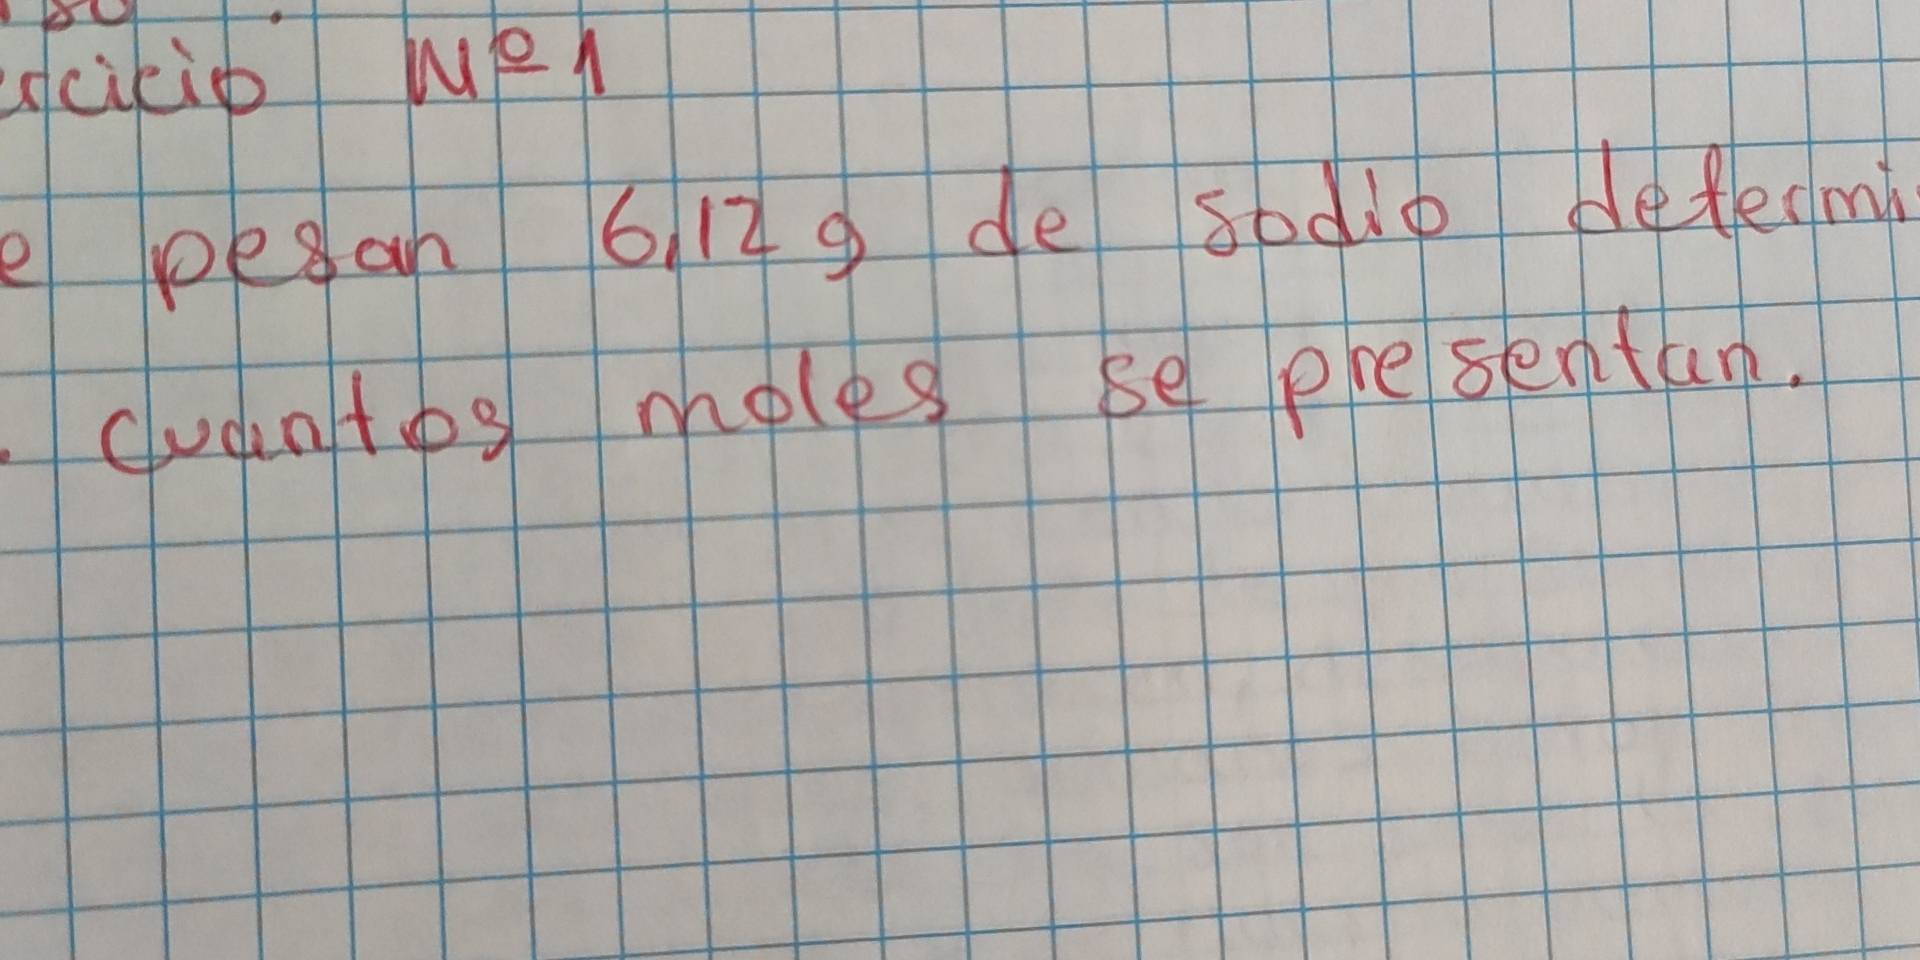 rcicio Nº 1
e pesan 6,12 g de sodio determi
. cuantos moles se presentan.